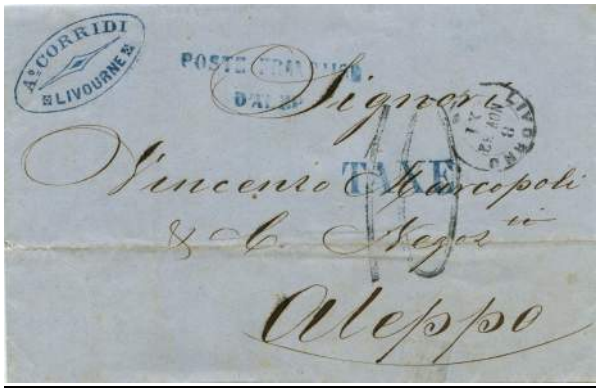 Aº CORRIDI
LIVOURNE
POSTE FRANÇAISE
D'ALEP
LIVORNO
8
NOV
Signori
TAXE
10
Vincenzo Marcopoli
& C. Negozti
Aleppo